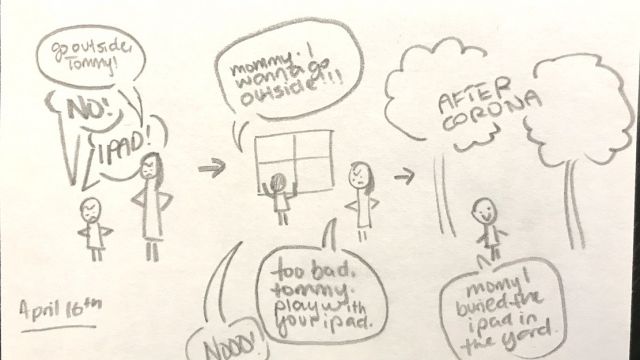 go outside,
Tommy!
NO!
IPAD!
mommy. I
wanna go
outside!!!
too bad.
tommy.
play with
your ipad.
NOOO!
AFTER
CORONA
momy I
buried the
ipad in
the yard.
April 16th